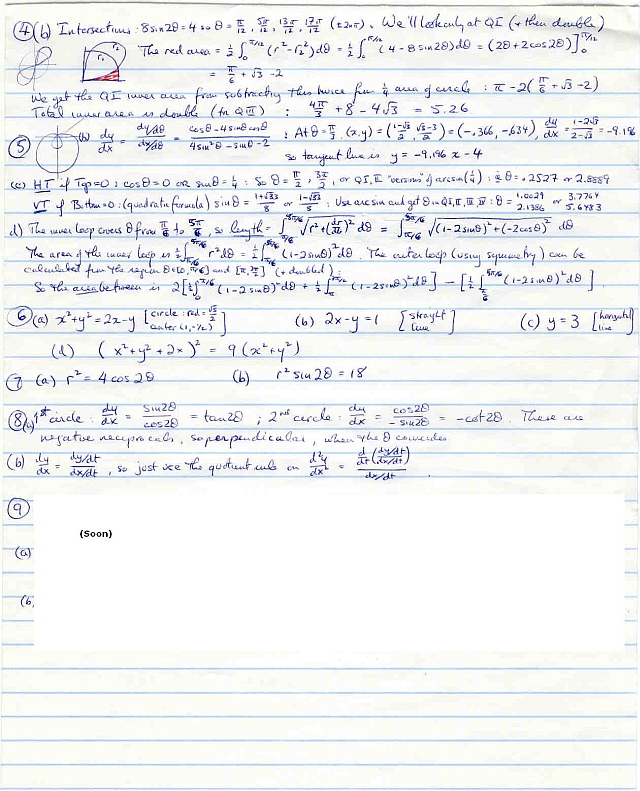 ④(b) Intersections: 8sin2θ = 4 so θ = π/12, 5π/12, 13π/12, 17π/12 (±2nπ). We'll look only at QI (& then double)
The red area = ½∫₀^(π/12) (r₁² - r₂²)dθ = ½∫₀^(π/12) (4 - 8sin2θ)dθ = (2θ + 2cos2θ)]₀^(π/12)
= π/6 + √3 - 2
We get the QI inner area from subtracting this twice from ¼ area of circle : π - 2(π/6 + √3 - 2)
Total inner area is double (for QIII) : 4π/3 + 8 - 4√3 = 5.26
⑤ (b) dy/dx = (dy/dθ)/(dx/dθ) = (cosθ - 4sinθcosθ)/(4sin²θ - sinθ - 2) : At θ = π/3, (x,y) = ((1-√3)/2, (√3-3)/2) = (-.366, -.634), dy/dx = (1-2√3)/(2-√3) = -9.196
so tangent line is y = -9.196x - 4
(c) HT if Top=0 : cosθ = 0 or sinθ = ¼ : So θ = π/2, 3π/2, or QI, II "versions" of arcsin(¼) : θ = .2527 or 2.8889
VT if Bottom=0 : (quadratic formula) sinθ = (1+√33)/8 or (1-√33)/8 : Use arcsin and get θ in QI, II, III, IV : θ = 1.0029 2.1386 or 3.7764 5.6483
d) The inner loop covers θ from π/6 to 5π/6, so length = ∫_(π/6)^(5π/6) √(r² + (dr/dθ)²) dθ = ∫_(π/6)^(5π/6) √((1-2sinθ)² + (-2cosθ)²) dθ
The area of the inner loop is ½∫_(π/6)^(5π/6) r²dθ = ½∫_(π/6)^(5π/6) (1-2sinθ)²dθ. The outer loop (using symmetry) can be
calculated from the region θ∈[0, π/6] and [π, 3π/2] (& doubled) :
So the area between is 2[½∫₀^(π/6) (1-2sinθ)²dθ + ½∫_π (1-2sinθ)²dθ] - [½∫_(π/6)^(5π/6) (1-2sinθ)²dθ].
⑥ (a) x²+y² = 2x-y [circle: rad = √5/2 center (1,-½)] (b) 2x-y = 1 [straight line] (c) y = 3 [horizontal line]
(d) (x²+y²+2x)² = 9(x²+y²)
⑦ (a) r² = 4cos2θ (b) r²sin2θ = 18
⑧(a) 1st circle : dy/dx = sin2θ/cos2θ = tan2θ ; 2nd circle : dy/dx = cos2θ/-sin2θ = -cot2θ. These are
negative reciprocals, so perpendicular, when the θ coincides.
(b) dy/dx = (dy/dt)/(dx/dt), so just use the quotient rule on d²y/dx² = d/dt((dy/dt)/(dx/dt))/(dx/dt).
⑨
(Soon)
(a)
(b)